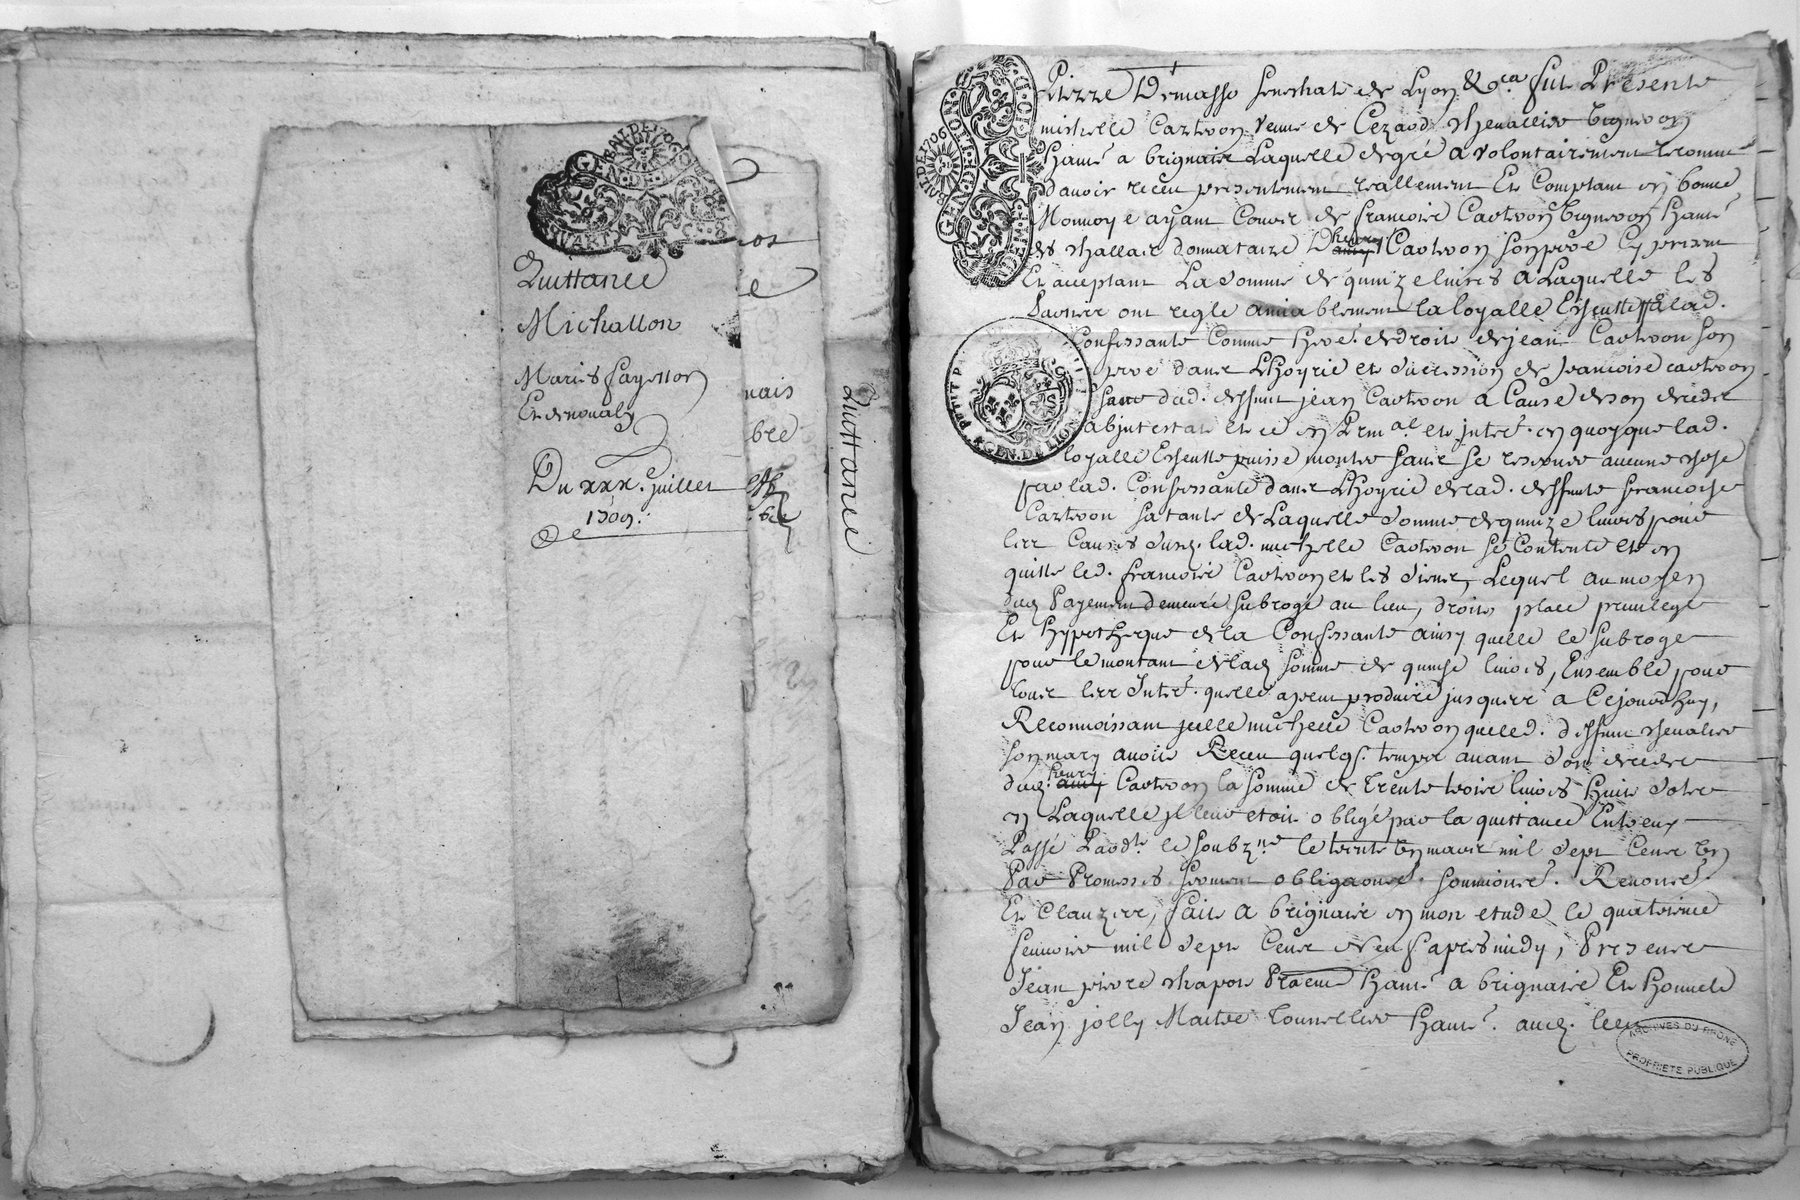 Quittance
Michallon
Maries fayetton
Du xxx.e juillet
1709.
nais
bre
Quittance
Pierre Demasso seneschal de Lyon &c.ca fut Presente
michelle Cartvon veuve de Cezard chevallier vigneron
habt a brignais Laquelle de gré a volontairement reconnu
d'avoir receu presentement reallement Et Comptant en bonne
Monnoye ayant Cours de françois Cartvon vigneron habt
donnataire D henry Cartvon son pere Cy present
Et acceptant La somme de quinze livres a Laquelle les
parties ont reglé amiablement la loyalle Escheutte a lad.
Confessante Comme here. de droit de jean Cartvon son
pere dans L'hoyrie et succession de francoise cartvon
sœur dud. deffunt jean Cartvon a Cause de son decedz
abjntestat et ce en Prin.al et jntert. en quoy que lad.
loyalle Escheutte puisse monter sans se reserver aucune chose
par lad. Confessante dans L'hoyrie de lad. deffunte francoise
Cartvon sa tante de Laquelle somme de quinze livres pour
les Causes susd. lad. michelle Cartvon se Contente et en
quitte led. francois Cartvon et les siens, Lequel au moyen
dud. Payement demeure subrogé au lieu, droits, place privilege
Et hypotheque de la Confessante ainsy quelle le subroge
pour le montant de lad. somme de quinse livres, Ensemble pour
tous les Interts. quelle a peut produire jusques a Cejourdhuy,
Reconnoissant jcelle michelle Cartvon que led. deffunt chevalier
son mary avoit Receu quelqs. temps avant son decedz
dud. henry Cartvon la somme de trente trois livres huit sols
en Laquelle jl leur etoit obligé par la quittance Entreux
Passé Pardt. le soubz.né le trente un mars mil sept Cens un
Par Promesses serment obligaons. soumions. Renons.
Et Clauzes, fait a brignais en mon etude le quatrieme
fevrier mil sept Cens neuf apres midy, Presens
Jean pierre chapon Praticien habt. a brignais Et honneste
Jean jolly Maitre tonnellier habt. aud. lieu
ARCHIVES DU RHONE
PROPRIÉTÉ PUBLIQUE